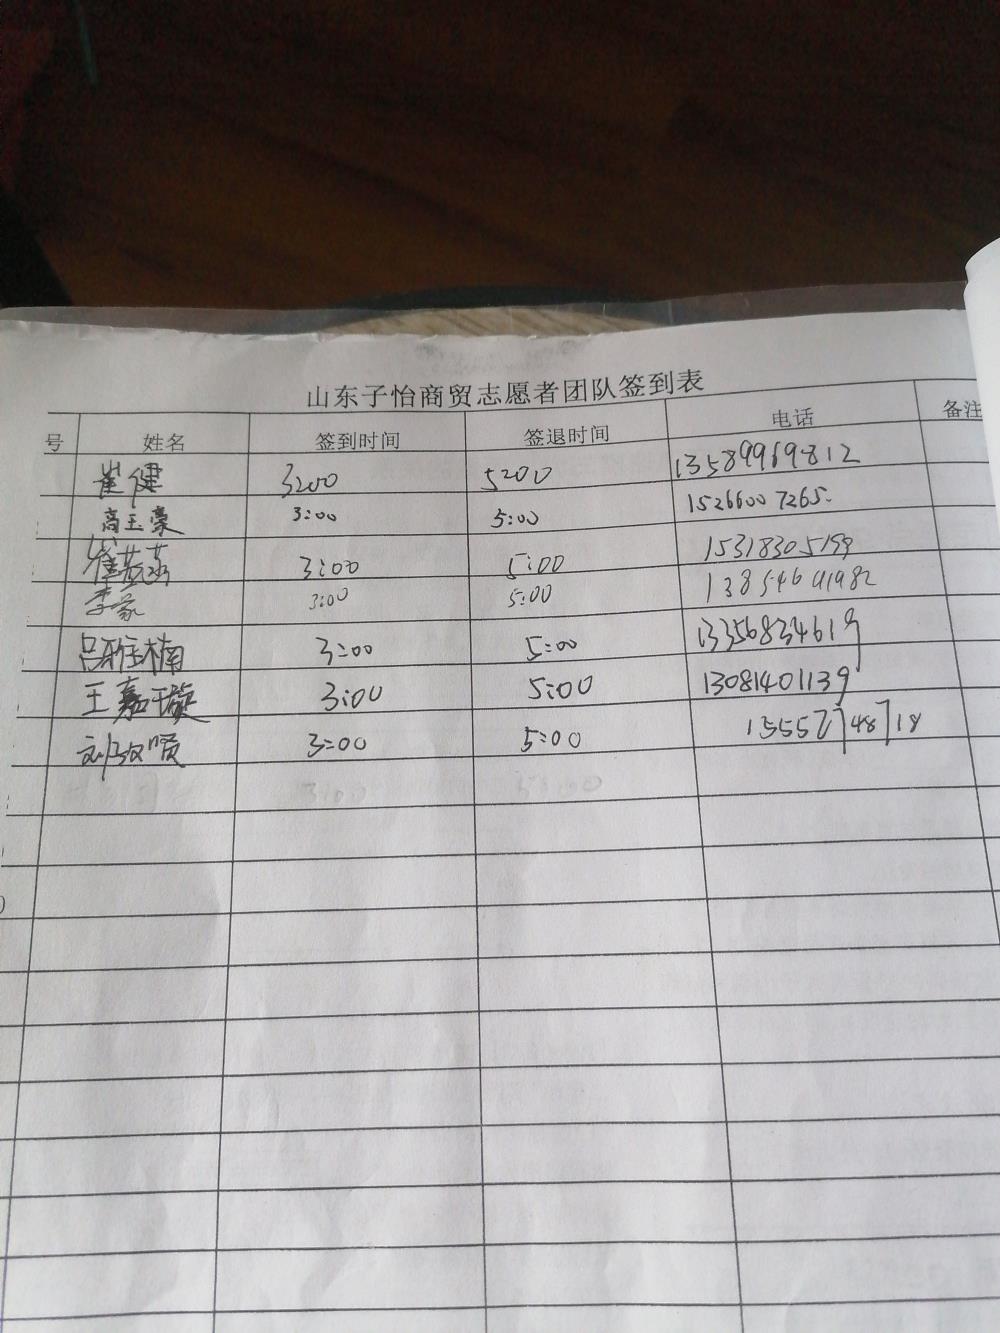 山东子怡商贸志愿者团队签到表
号 姓名 签到时间 签退时间 电话 备注
崔健 3:00 5:00 13589969812
高玉豪 3:00 5:00 15266007265
崔燕 3:00 5:00 15318305199
李家 3:00 5:00 13854691982
吕雅楠 3:00 5:00 13356834619
王嘉璇 3:00 5:00 13081401139
刘政贤 3:00 5:00 15552748718